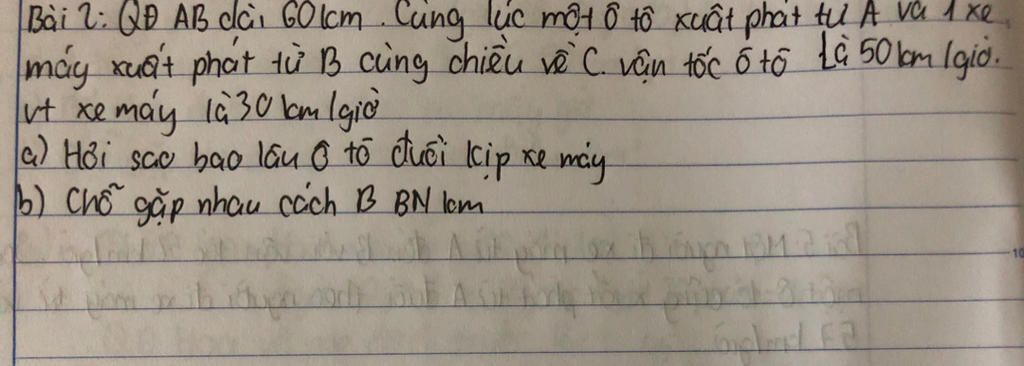 Bài 2: QĐ AB dài 60km. Cùng lúc một ô tô xuất phát từ A và 1 xe
máy xuất phát từ B cùng chiều về C. vận tốc ô tô là 50km/giờ.
vt xe máy là 30km/giờ
a) Hỏi sao bao lâu ô tô đuổi kịp xe máy
b) Chỗ gặp nhau cách B BN km